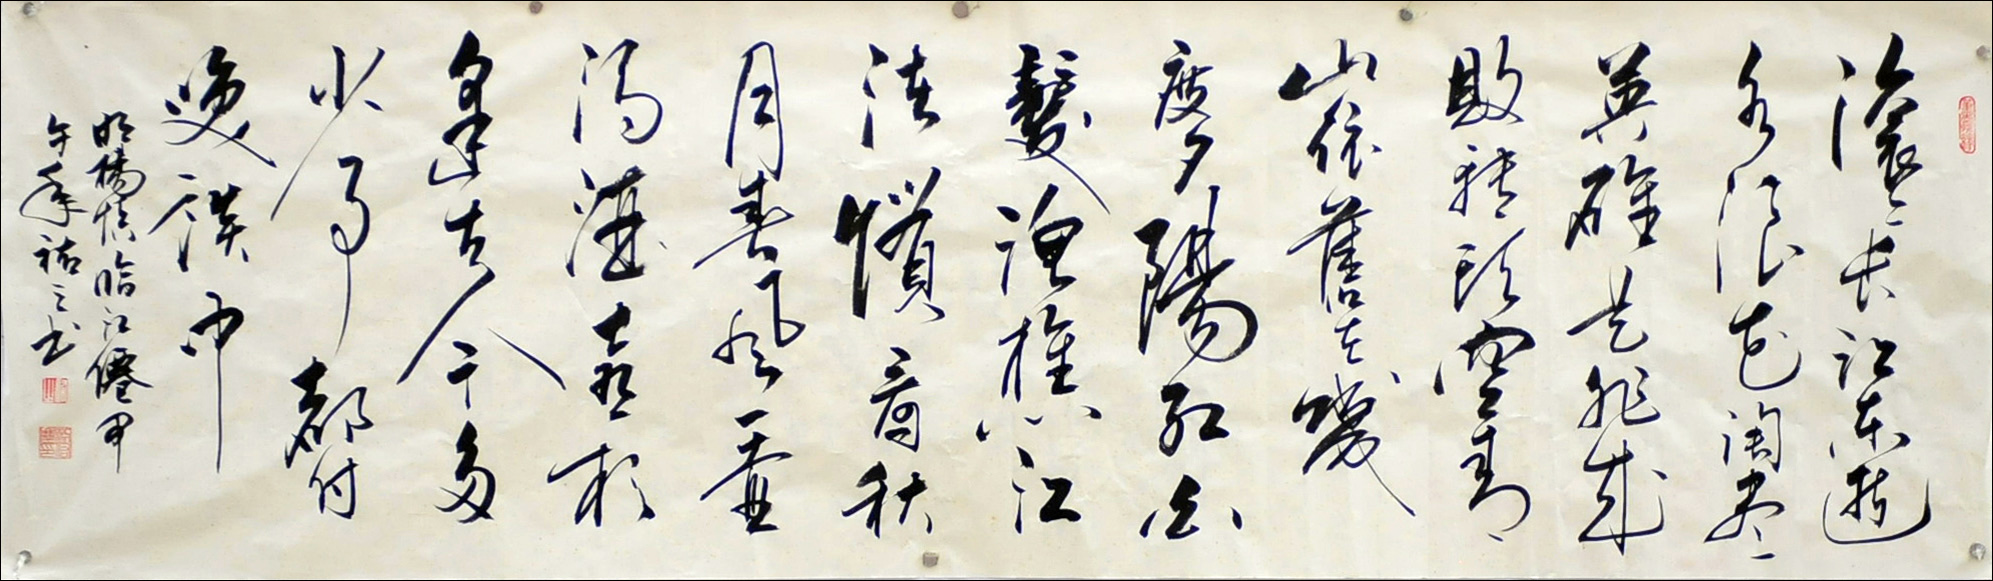 滚滚长江東逝
水浪花淘尽
英雄是非成
敗转头空青
山依舊在幾
度夕陽红白
髮渔樵江
渚慣看秋
月春风一壶
濁酒喜相
逢古今多
少事都付
咲谈中
明楊慎臨江僊甲
午年祐之书